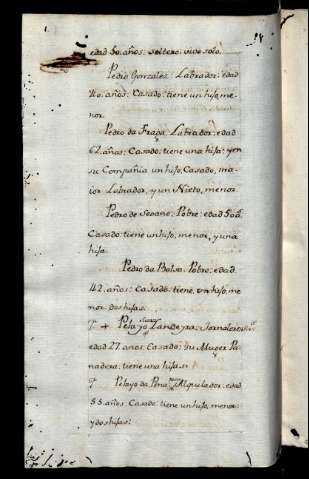 edad 50. años: soltero: vive solo.
Pedro Gonzalez: Labrador: edad
40. años: Casado: tiene un hijo, me-
nor.
Pedro da Fraga: Labrador: edad
62. años: Casado: tiene una hija: y en
su Compañia un hijo, Casado, ma-
ior Labrador, y un Nieto, menor.
Pedro de Seoane: Pobre: edad 50 a.
Casado: tiene un hijo, menor, y una
hija.
Pedro da Bolsa: Pobre: edad.
42. años: Casado: tiene, un hijo, me-
nor dos hijas.
Pelayo Landeyra: Jornalero:
edad 27 anos. Casado: su Muger Pa-
nadera: tiene una hija.
Pelayo da Pena Alquilador: edad
55 años. Casado: tiene un hijo, menor:
y dos hijas: